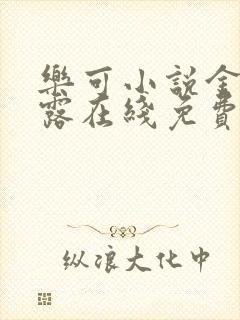 樂可小説金
露在綫免費
纵浪大化中